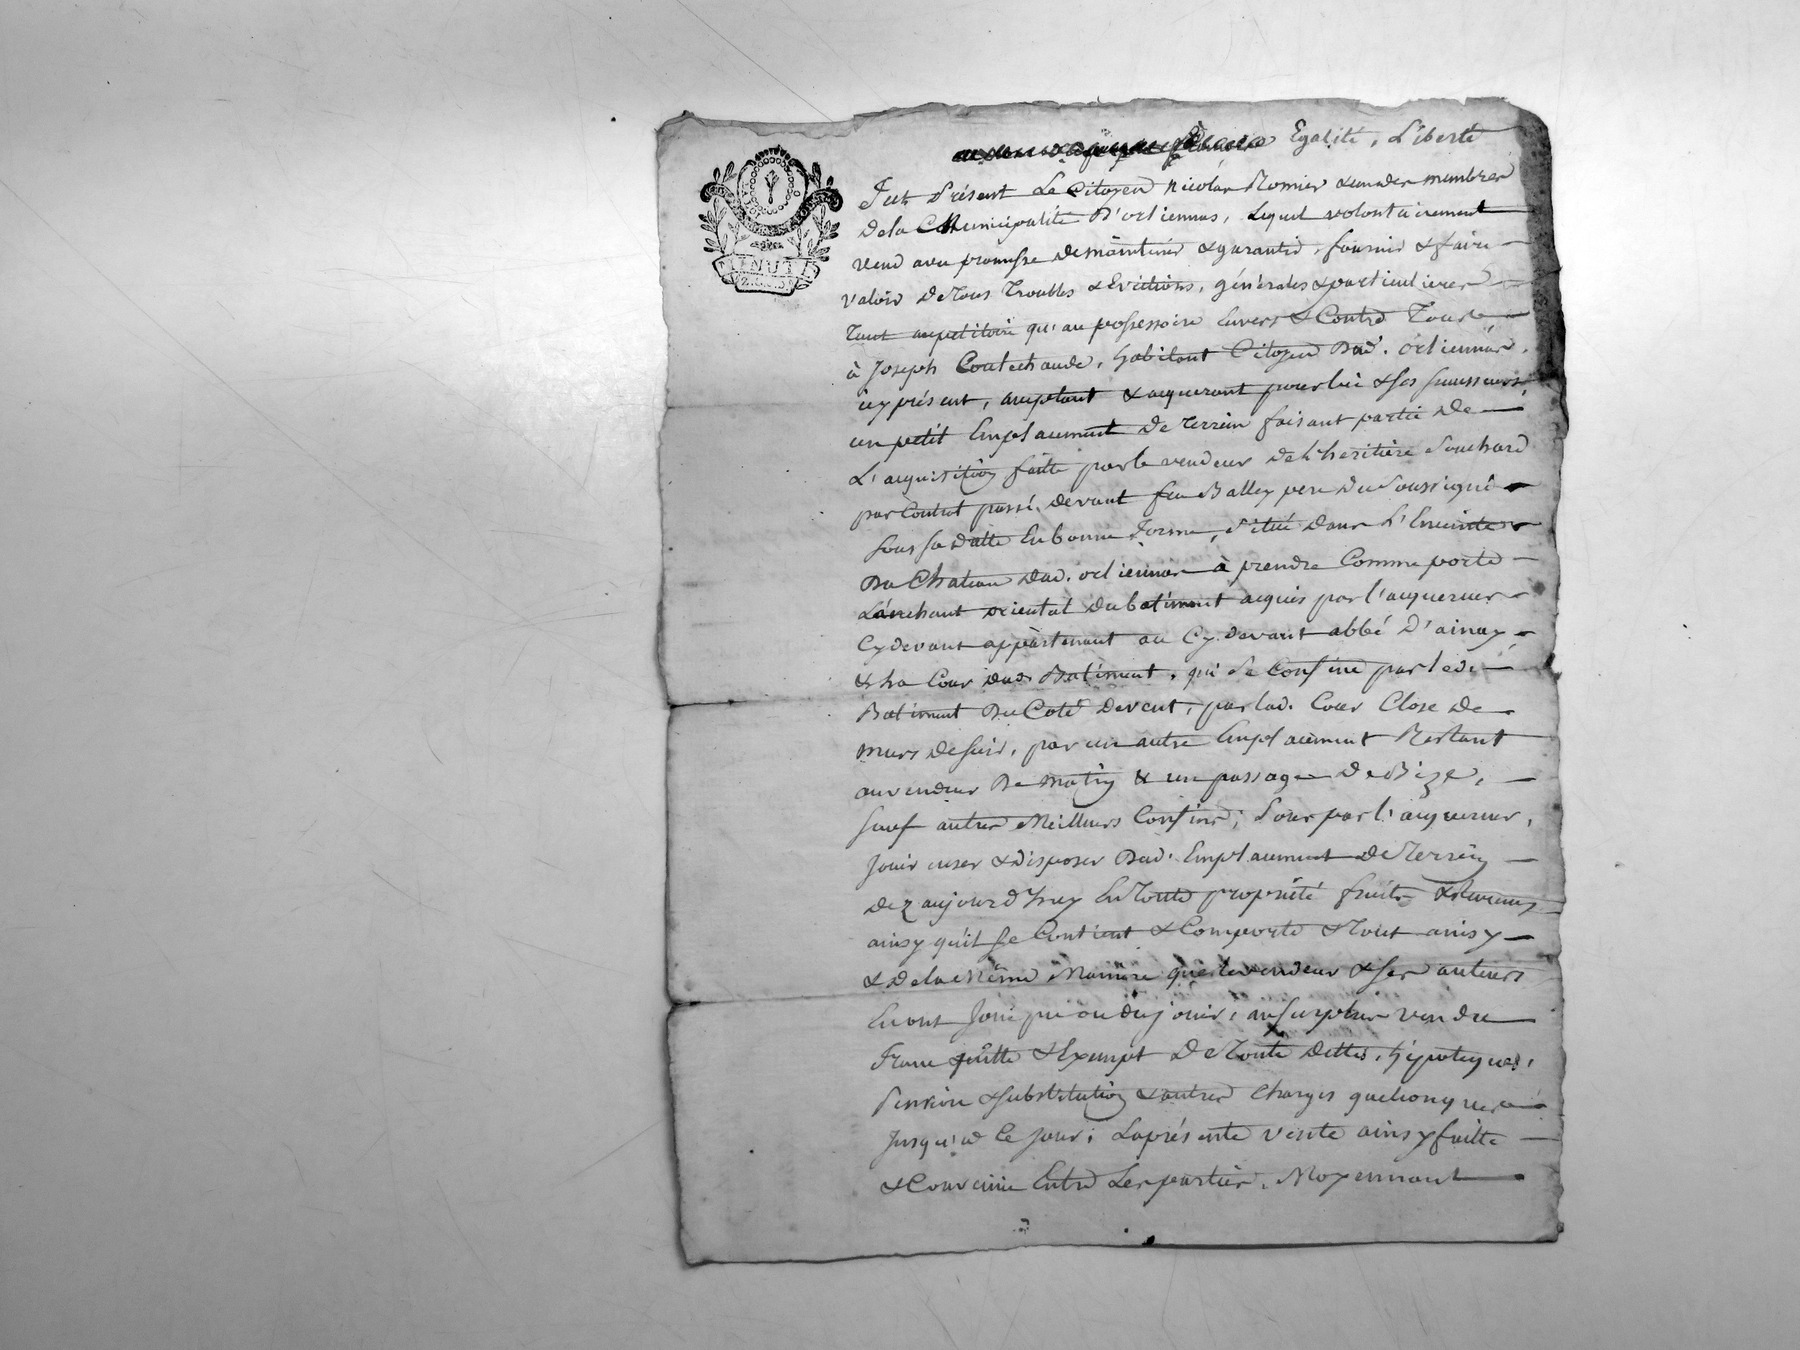 Egalité, Liberté
MINUTE
Fut Présent Le Citoyen Nicolas Romier l'un des membres
De la Municipalité D'orliennas, Lequel volontairement
vend avec promesse de maintenir & garantir, fournir & faire
valoir De Tous Troubles & Evictions, générales & particulieres
Tant au petitoire qu'au possessoire Envers & Contre Tous
à Joseph Coutechaude, habitant Citoyen Dud. orliennas,
icy présent, acceptant & acquerant pour lui & ses successeurs
un petit Emplacement De Terrein faisant partie De
L'acquisition faitte par le vendeur De l'heritière Souchard
par Contrat passé, devant feu Balley pere Du Soussigné
Sous sa Datte En bonne Forme, Situé Dans L'Enceinte
Du Chateau Dud. orliennas à prendre Comme porte
L'anchant oriental du batiment acquis par l'acquereur
Cydevant appartenant au Cy devant abbé D'ainay
& la Cour dud. Batiment, qui Se Confine par led.
Batiment Du Coté De vent, par lad. Cour Close De
murs De soir, par un autre Emplacement Restant
au vendeur De matin & un passage De Bize,
Sauf autres Meilleurs Confins; Pour par l'acquereur,
Jouir user & disposer Dud. Emplacement De Terrein
Dez aujourd'huy En Toute propriété fruits & Revenus
ainsy qu'il se Contient & Comporte & Tout ainsy
& De la Même Maniere que le vendeur & ses auteurs
En ont Joui pu ou du jouir, au Surplus vendu
Franc quitte & Exempt De Toute Dettes, hÿpoteques,
Pension & Substitution & autres Charges quelconques
Jusqu'à Ce Jour; La présente vente ainsy faitte
& Convenue Entre Les parties, Moyennant